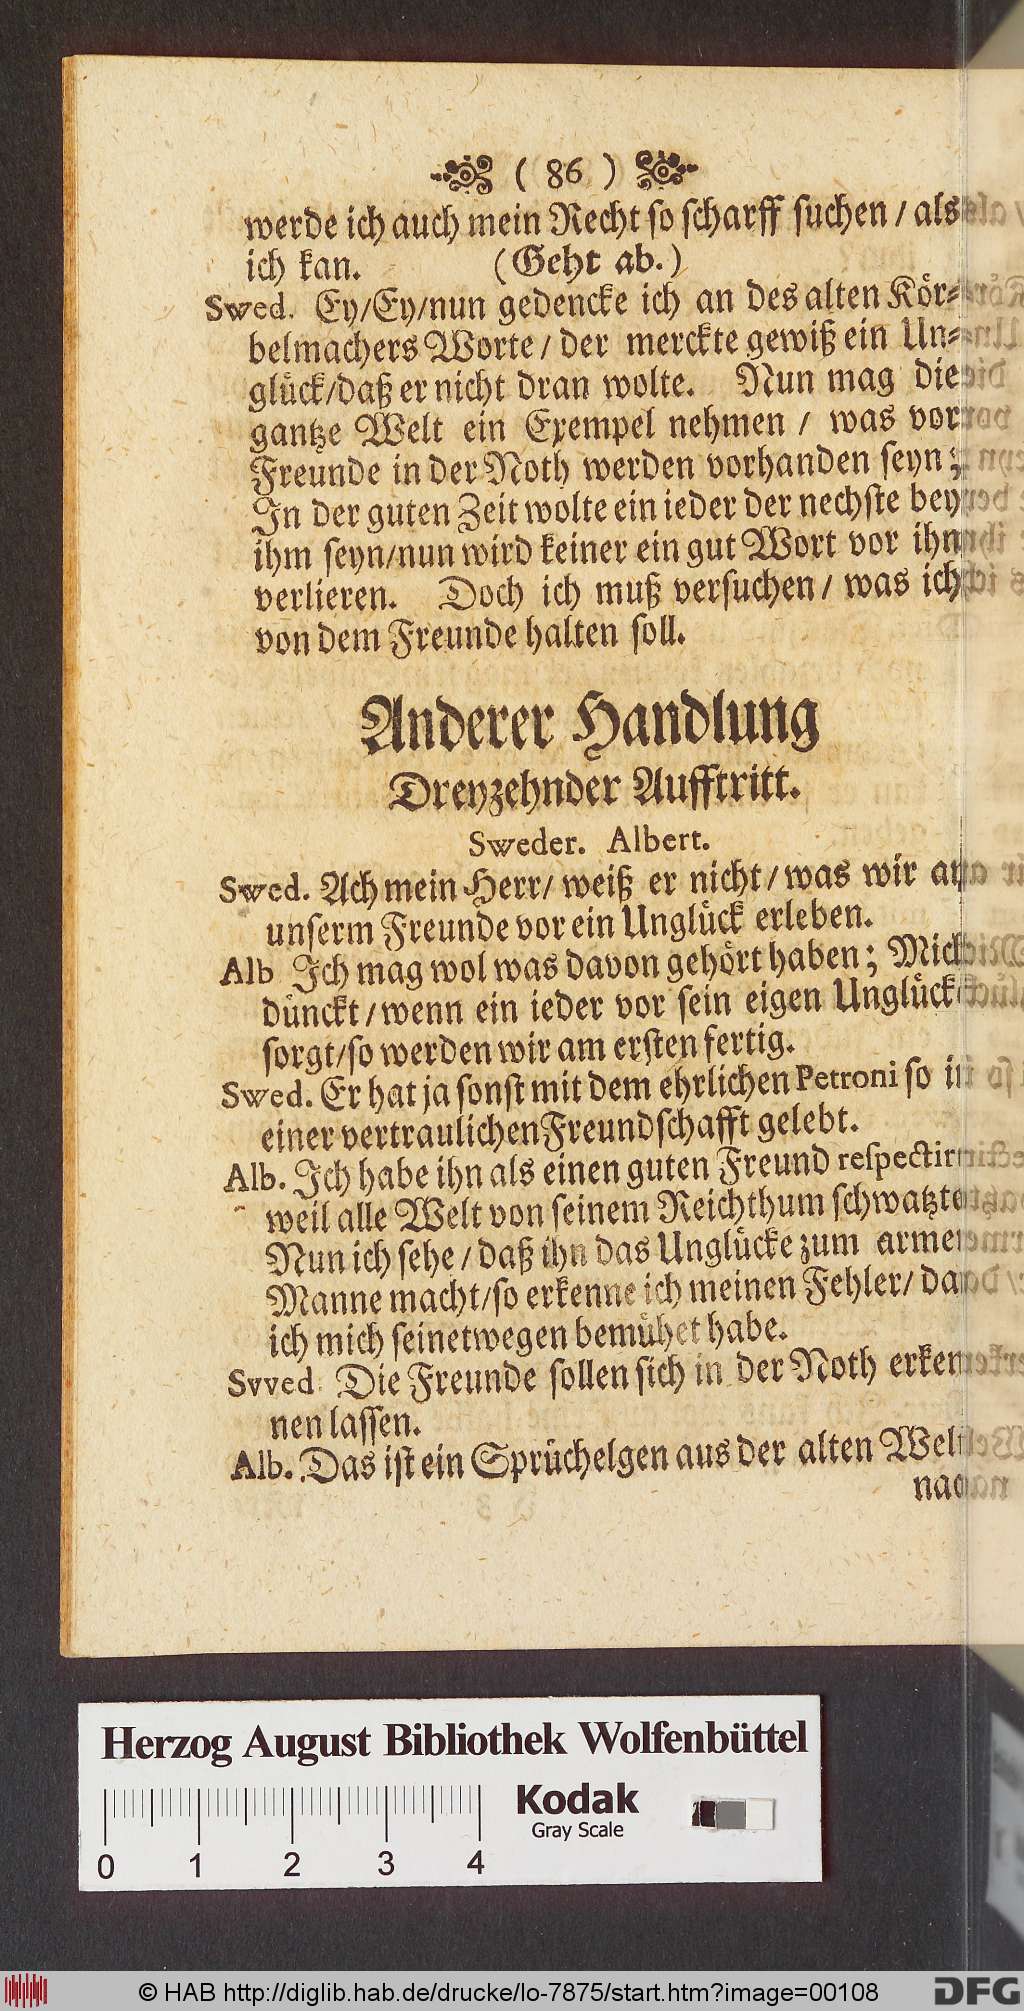 ( 86 )
werde ich auch mein Recht so scharff suchen / als
ich kan. (Geht ab.)
Swed. Ey/Ey/nun gedencke ich an des alten Kör-
belmachers Worte / der merckte gewiß ein Un-
glück/daß er nicht dran wolte. Nun mag die
gantze Welt ein Exempel nehmen / was vor
Freunde in der Noth werden vorhanden seyn;
In der guten Zeit wolte ein ieder der nechste bey
ihm seyn/nun wird keiner ein gut Wort vor ihn
verlieren. Doch ich muß versuchen / was ich
von dem Freunde halten soll.
Anderer Handlung
Dreyzehnder Aufftritt.
Sweder. Albert.
Swed. Ach mein Herr/ weiß er nicht / was wir an
unserm Freunde vor ein Unglück erleben.
Alb Ich mag wol was davon gehört haben; Mich
dünckt / wenn ein ieder vor sein eigen Unglück
sorgt/so werden wir am ersten fertig.
Swed. Er hat ja sonst mit dem ehrlichen Petroni so in
einer vertraulichen Freundschafft gelebt.
Alb. Ich habe ihn als einen guten Freund respectirt
weil alle Welt von seinem Reichthum schwatzte
Nun ich sehe / daß ihn das Unglücke zum armen
Manne macht/so erkenne ich meinen Fehler/ daß
ich mich seinetwegen bemühet habe.
Svved. Die Freunde sollen sich in der Noth erken
nen lassen.
Alb. Das ist ein Sprüchelgen aus der alten Welt
nach
Herzog August Bibliothek Wolfenbüttel
Kodak
Gray Scale
0 1 2 3 4
© HAB http://diglib.hab.de/drucke/lo-7875/start.htm?image=00108
DFG